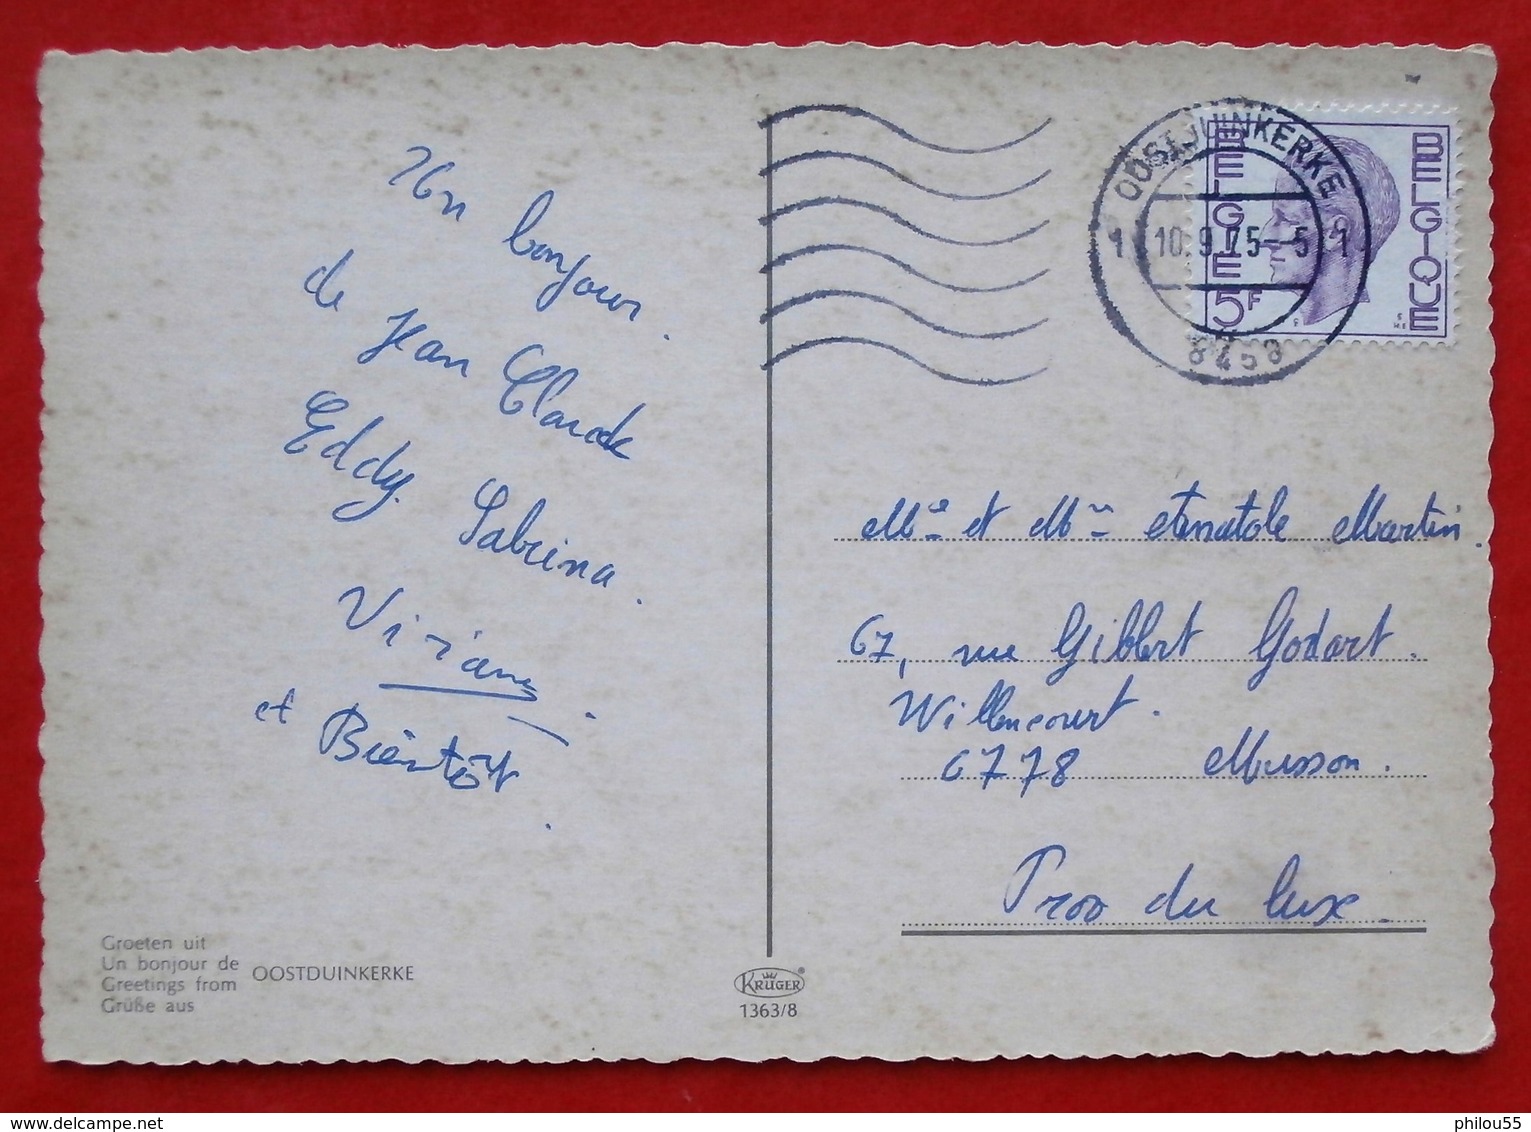 Un bonjour.
de Jean Claude
Eddy Sabrina.
Viviane.
et Bientôt.
Groeten uit
Un bonjour de
Greetings from
Grüße aus
OOSTDUINKERKE
KRÜGER
1363/8
OOSTDUINKERKE
1 10.9.75-5 1
8458
BELGIE 5F
BELGIQUE
Mme et Mr Martin.
67, rue Gibbert Godart.
Willencourt.
6778 Musson.
Prov du lux.
philou55
www.delcampe.net